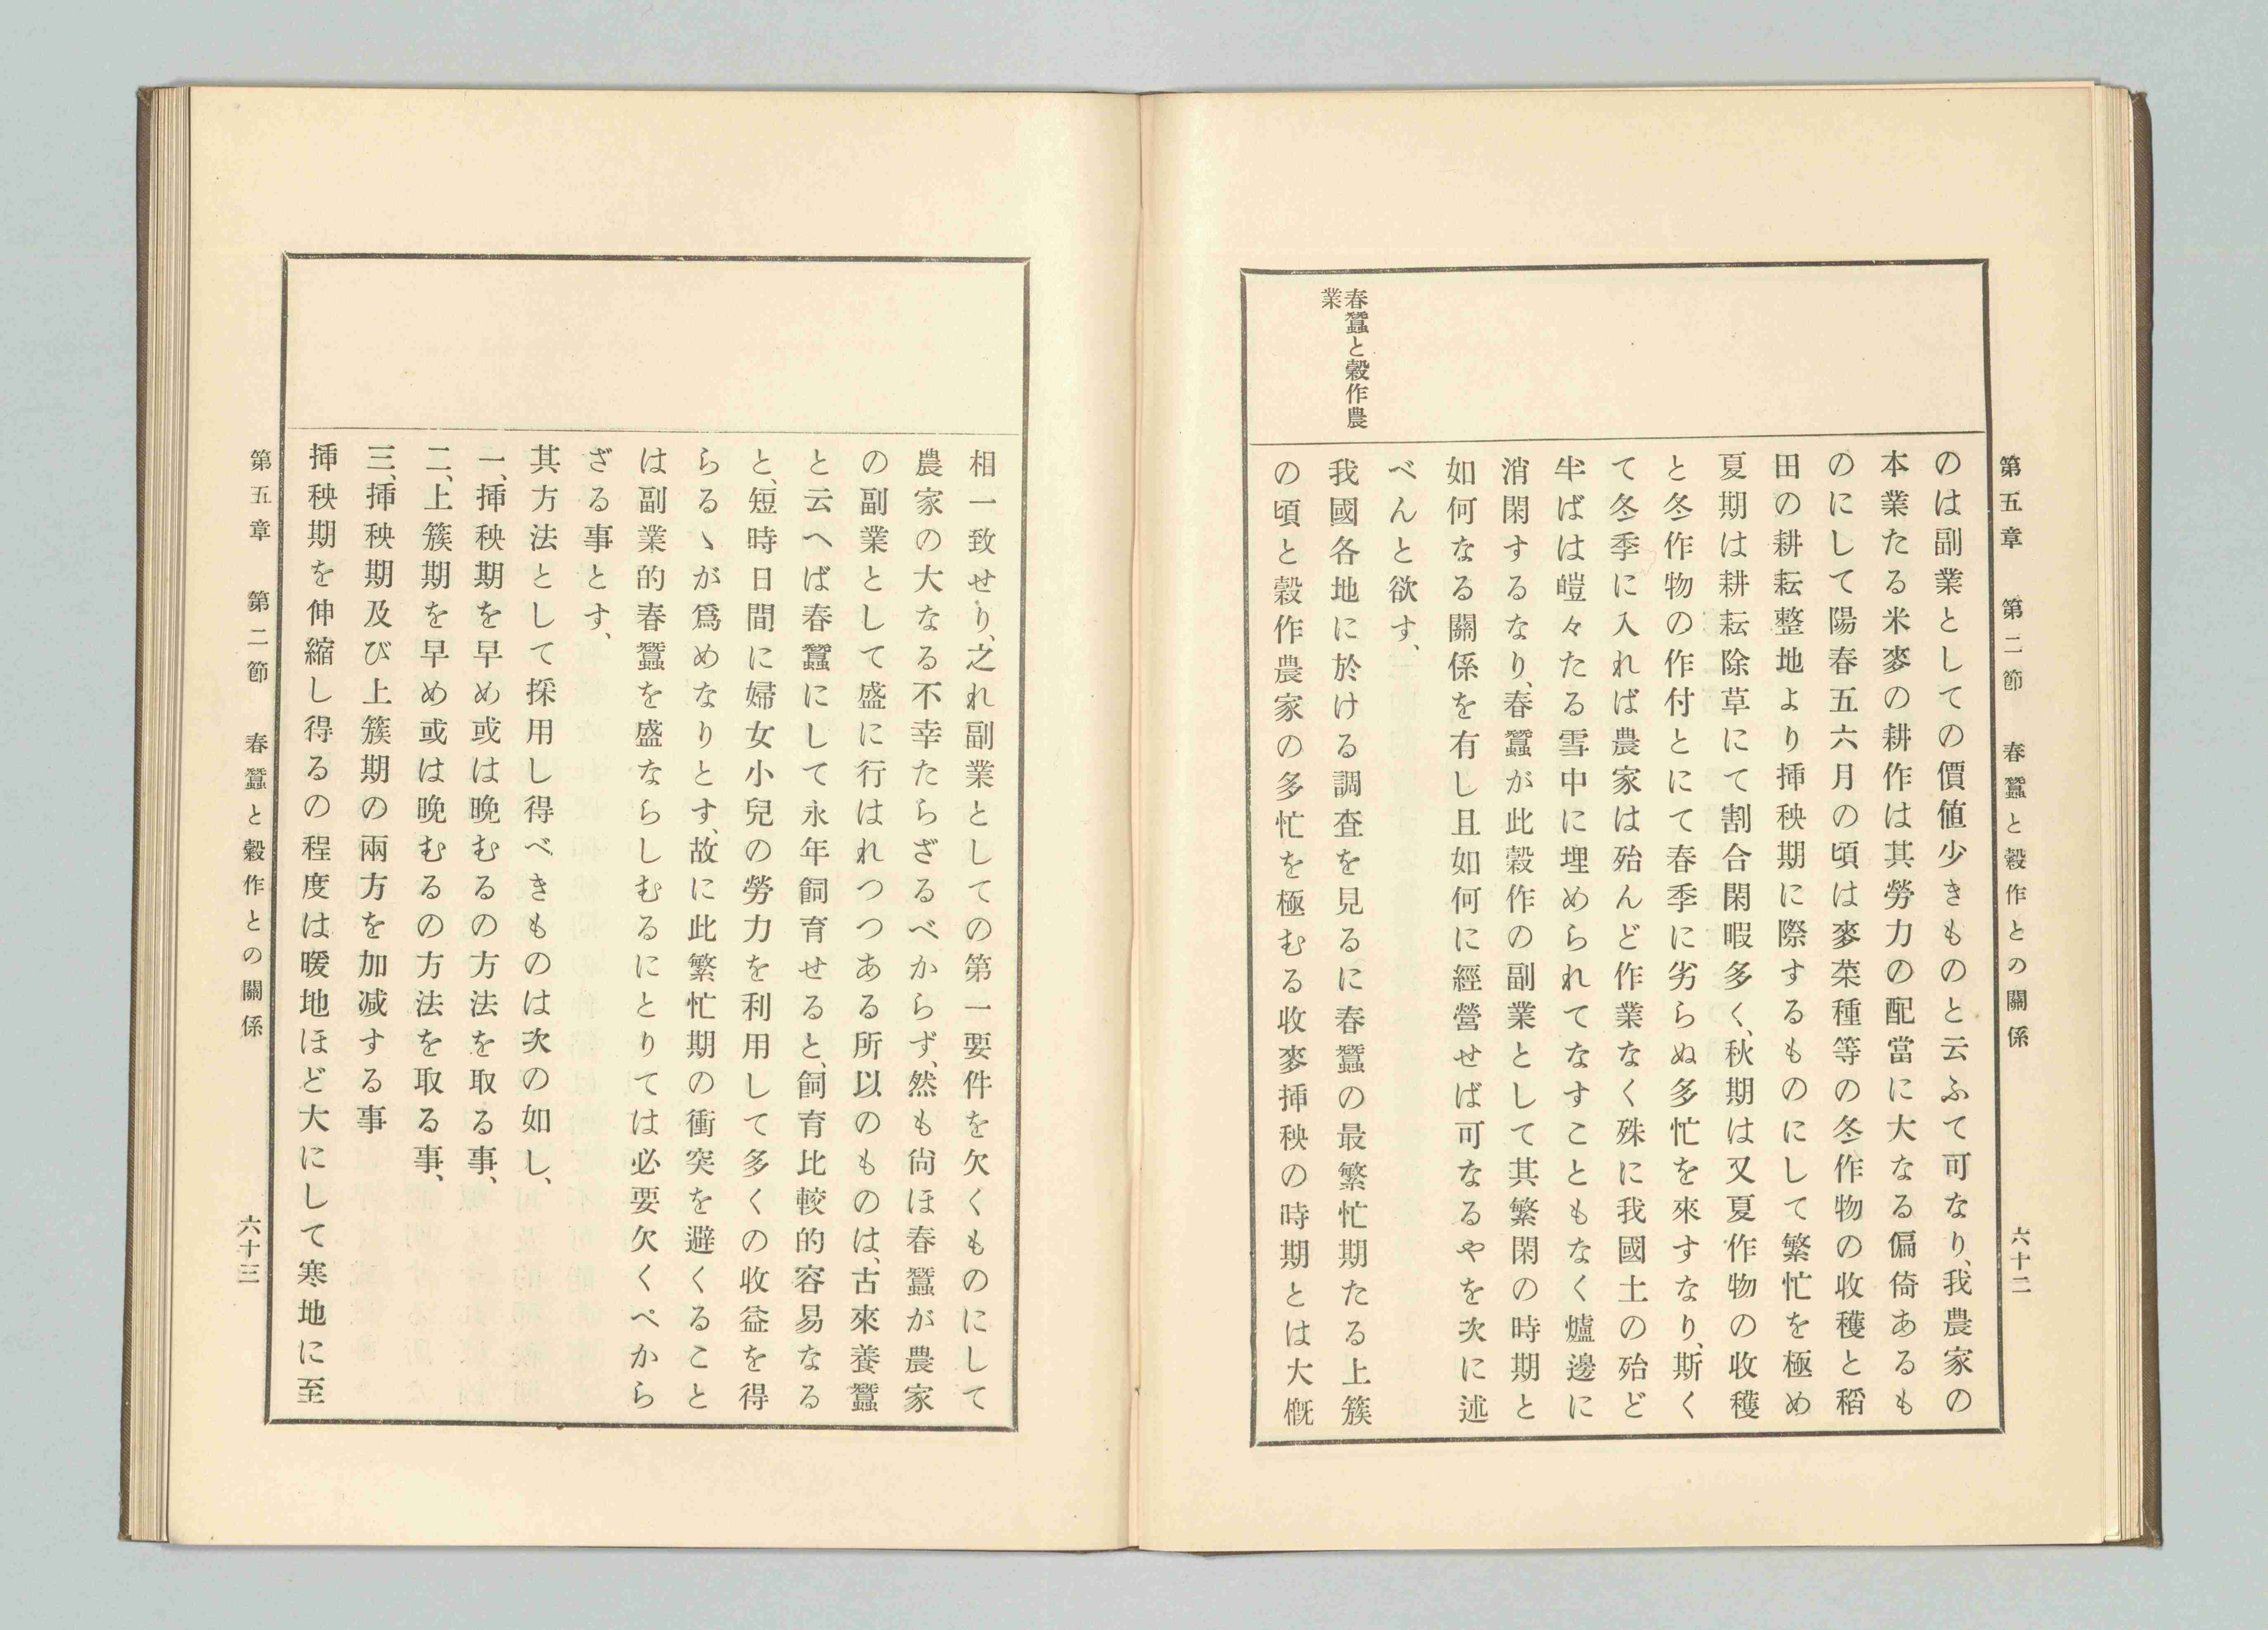 第五章　第二節　春蠶と穀作との關係　六十二
春蠶と穀作農
業
のは副業としての價値少きものと云ふて可なり、我農家の
本業たる米麥の耕作は其勞力の配當に大なる偏倚あるも
のにして陽春五六月の頃は麥菜種等の冬作物の收穫と稻
田の耕耘整地より揷秧期に際するものにして繁忙を極め
夏期は耕耘除草にて割合閑暇多く、秋期は又夏作物の收穫
と冬作物の作付とにて春季に劣らぬ多忙を來すなり、斯く
て冬季に入れば農家は殆んど作業なく殊に我國土の殆ど
半ばは皚々たる雪中に埋められてなすこともなく爐邊に
消閑するなり、春蠶が此穀作の副業として其繁閑の時期と
如何なる關係を有し且如何に經營せば可なるやを次に述
べんと欲す、
我國各地に於ける調査を見るに春蠶の最繁忙期たる上簇
の頃と穀作農家の多忙を極むる收麥揷秧の時期とは大槪
相一致せり、之れ副業としての第一要件を欠くものにして
農家の大なる不幸たらざるべからず、然も尙ほ春蠶が農家
の副業として盛に行はれつつある所以のものは、古來養蠶
と云へば春蠶にして永年飼育せると、飼育比較的容易なる
と、短時日間に婦女小兒の勞力を利用して多くの收益を得
らるゝが爲めなりとす、故に此繁忙期の衝突を避くること
は副業的春蠶を盛ならしむるにとりては必要欠くべから
ざる事とす、
其方法として採用し得べきものは次の如し、
一、揷秧期を早め或は晚むるの方法を取る事、
二、上簇期を早め或は晚むるの方法を取る事、
三、揷秧期及び上簇期の兩方を加減する事
揷秧期を伸縮し得るの程度は暖地ほど大にして寒地に至
第五章　第二節　春蠶と穀作との關係　六十三